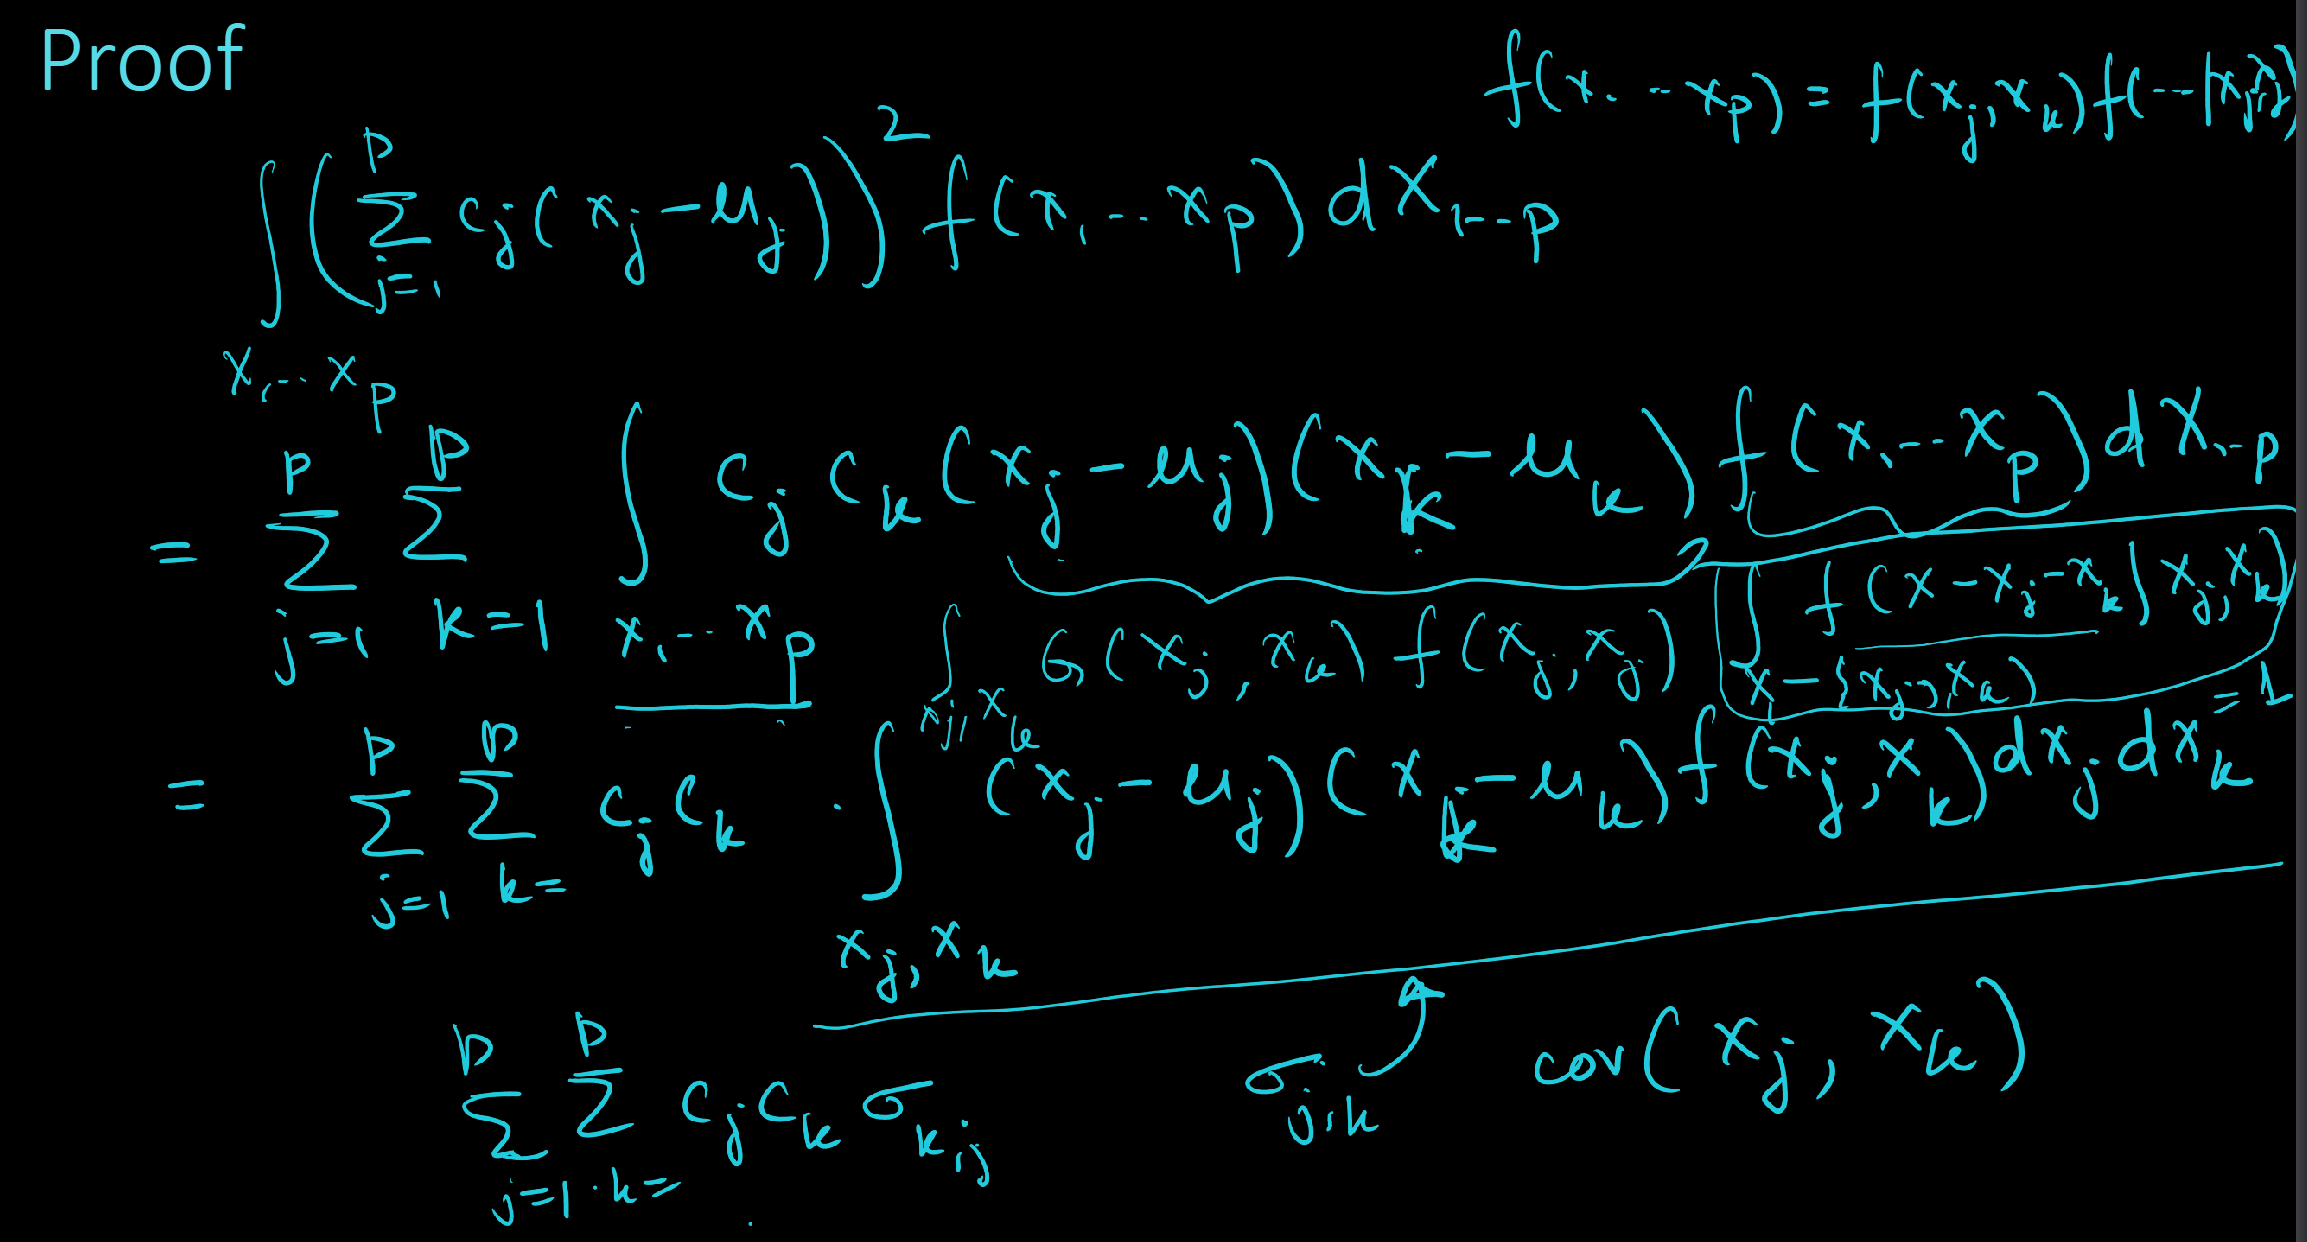 Proof
f(x₁ ... x_p) = f(x_j, x_k) f(...|x_j, x_k)
∫_{x₁...x_p} (∑_{j=1}^{p} c_j (x_j − μ_j))² f(x₁...x_p) dX_{1...p}
= ∑_{j=1}^{p} ∑_{k=1}^{p} ∫_{x₁...x_p} c_j c_k (x_j − μ_j)(x_k − μ_k) f(x₁...x_p) dX_{1...p}
∫_{x_j, x_k} G(x_j, x_k) f(x_j, x_j) ∫_{x₁ − {x_j, x_k}} f(x − x_j − x_k | x_j, x_k) = 1
= ∑_{j=1}^{p} ∑_{k=}^{p} c_j c_k · ∫_{x_j, x_k} (x_j − μ_j)(x_k − μ_k) f(x_j, x_k) dx_j dx_k
∑_{j=1}^{p} ∑_{k=}^{p} c_j c_k σ_{k,j}
σ_{j,k} cov(x_j, x_k)